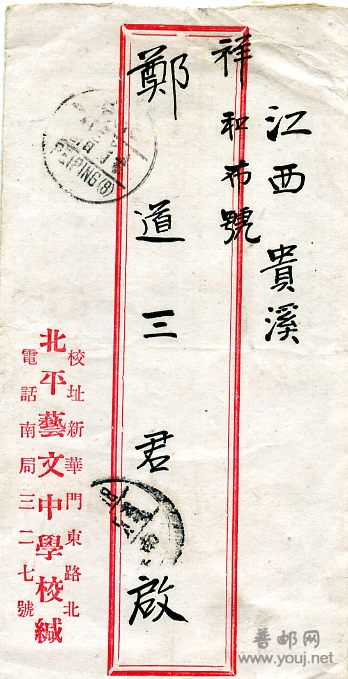 江西貴溪
祥和布號
鄭道三君啟
校址新華門東路北
北平藝文中學校緘
電話南局三二七號
PEIPING(8)
普邮网
www.youj.net